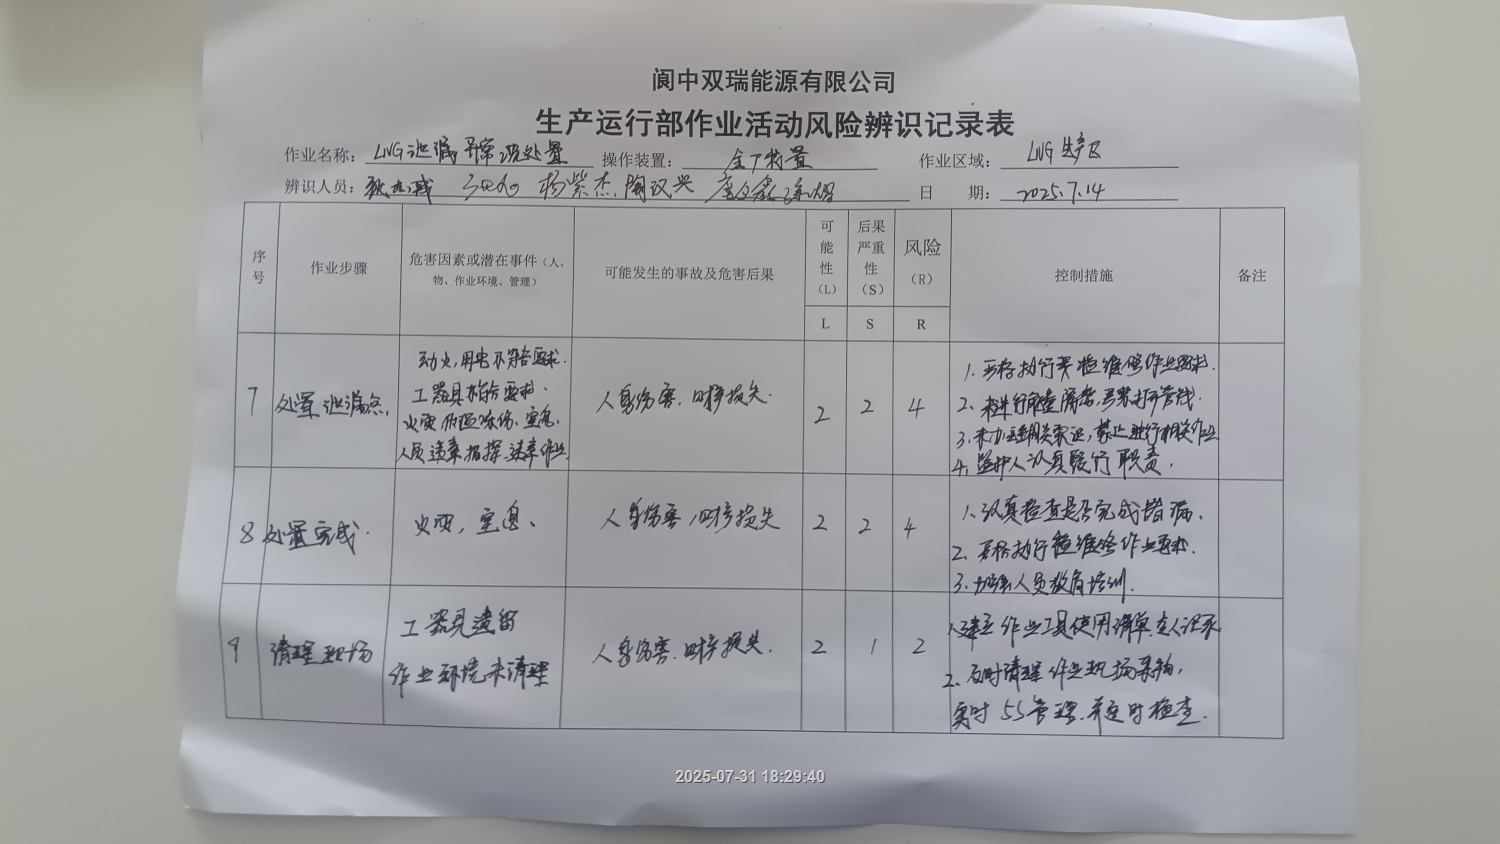 阆中双瑞能源有限公司
生产运行部作业活动风险辨识记录表
作业名称: LNG泄漏异常 处置 操作装置: 全厂装置 作业区域: LNG生产区
辨识人员: 杨紫杰 陶汉兴 日 期: 2025.7.14
序号 作业步骤 危害因素或潜在事件（人、物、作业环境、管理） 可能发生的事故及危害后果 可能性（L） 后果严重性（S） 风险（R） 控制措施 备注
L S R
7 处置泄漏点. 人身伤害.财产损失. 2 2 4
动火,用电不符合要求.
工器具不符合要求.
火灾 低温冻伤、窒息.
人员违章指挥.违章作业
1. 严格执行 检维修作业要求.
2. 未进行 严禁打开管线.
3. 未办理相关票证,禁止进行相关作业
4. 监护人认真履行职责.
8 处置完成. 火灾,窒息、 人身伤害,财产损失 2 2 4
1. 认真检查是否完成堵漏.
2. 严格执行检维修作业要求.
3. 加强人员教育培训.
9 清理现场 人身伤害.财产损失. 2 1 2
工器具遗留
作业环境未清理
1.建立作业工具使用清单 记录
2. 及时清理作业现场杂物,
实时5S管理.并定时检查.
2025-07-31 18:29:40